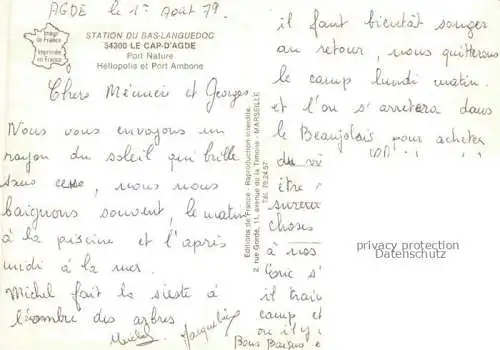 AGDE le 1er Août 79.
Image de France
Imprimée en France
STATION DU BAS-LANGUEDOC
34300 LE CAP-D'AGDE
Port Nature
Héliopolis et Port Ambone
Chers Mémée et Georges
Nous vous envoyons un
rayon du soleil qui brille
sans cesse, nous nous
baignons souvent, le matin
à la piscine et l'après
midi à la mer.
Michel fait la sieste à
l'ombre des arbres
Michel Jacqueline
Editions de France - Reproduction interdite
2, rue Gordé, 11, avenue du la Timone - MARSEILLE
Tél. 79.24.57
il faut bientôt songer
au retour, nous quitterons
le camp lundi matin.
et l'on s'arretera dans
le Beaujolais pour acheter
du
être
choses
à nos
il
camp et
ou il y
Bons Baisers
privacy protection
Datenschutz